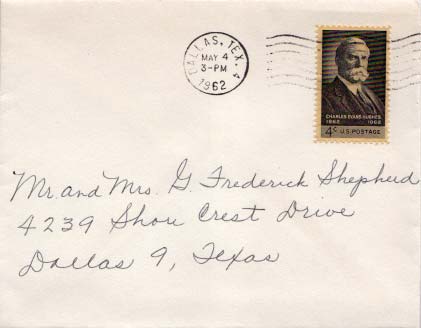 DALLAS, TEX. 4
MAY 4
3-PM
1962
CHARLES EVANS HUGHES
1862 1962
4¢ U.S. POSTAGE
Mr. and Mrs. G. Frederick Shepherd
4239 Shore Crest Drive
Dallas 9, Texas